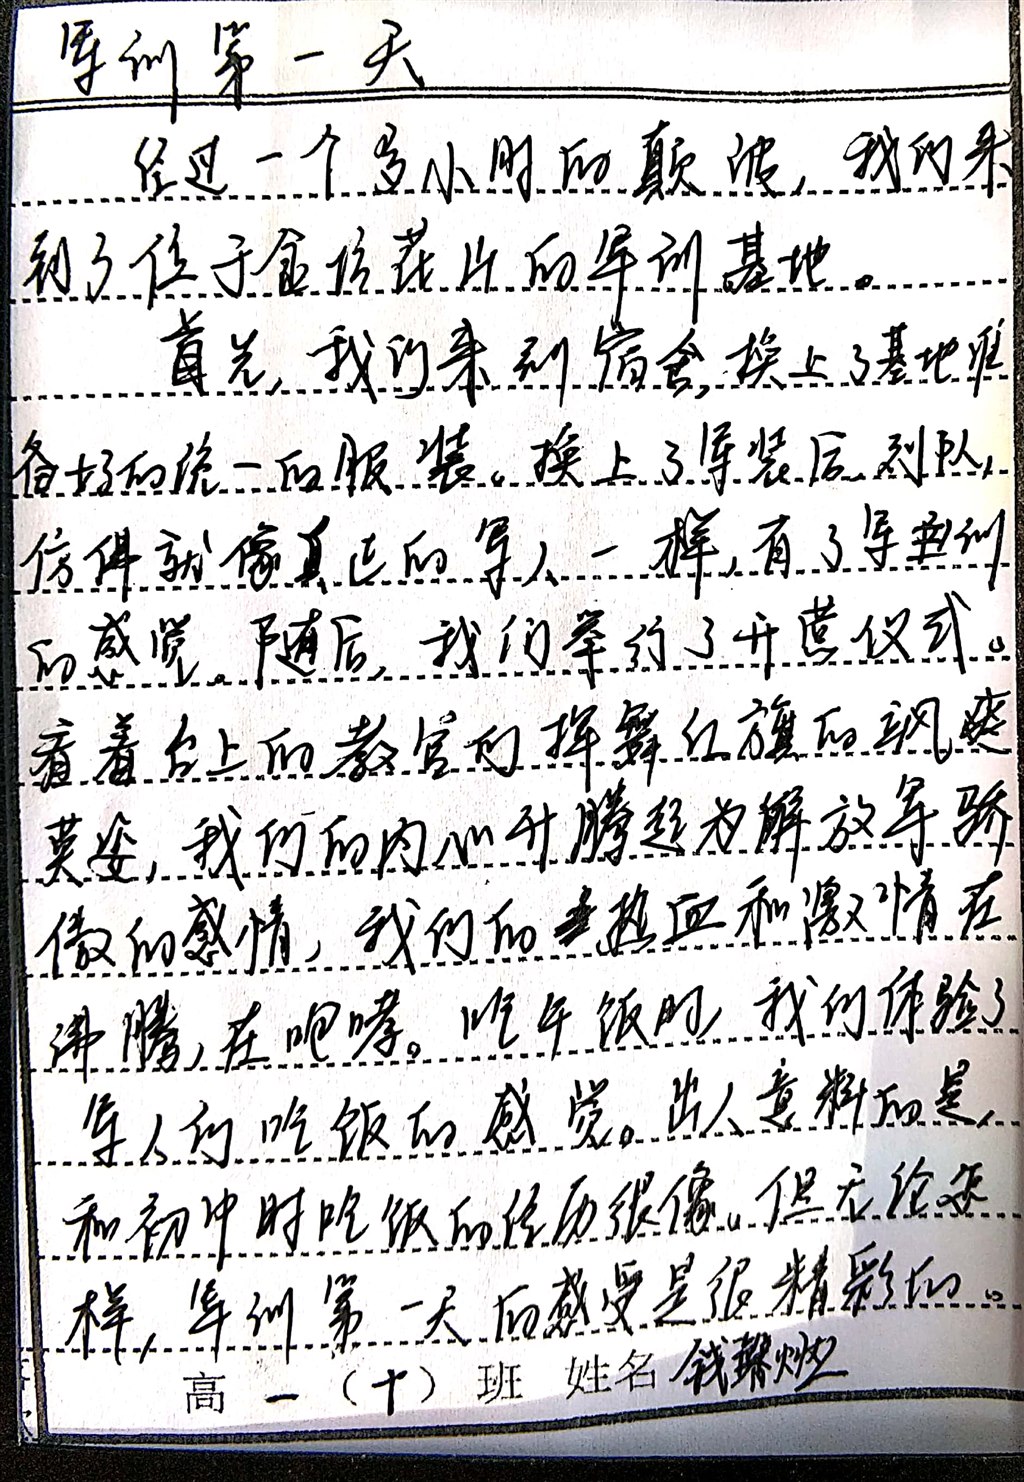 军训第一天
经过一个多小时的颠波，我们来
到了位于金信花片的军训基地。
首先，我们来到宿舍，换上了基地准
备好的统一的服装。换上了军装后列队，
仿佛就像真正的军人一样，有了军训
的感觉。随后，我们举行了开营仪式。
看着台上的教官们挥舞红旗的飒爽
英姿，我们的内心升腾起为解放军骄
傲的感情，我们的热血和激情在
沸腾，在咆哮。吃午饭时，我们体验了
军人们吃饭的感觉。出人意料的是，
和初中时吃饭的经历很像。但无论怎
样，军训第一天的感受是很精彩的。
高一（十）班 姓名 钱